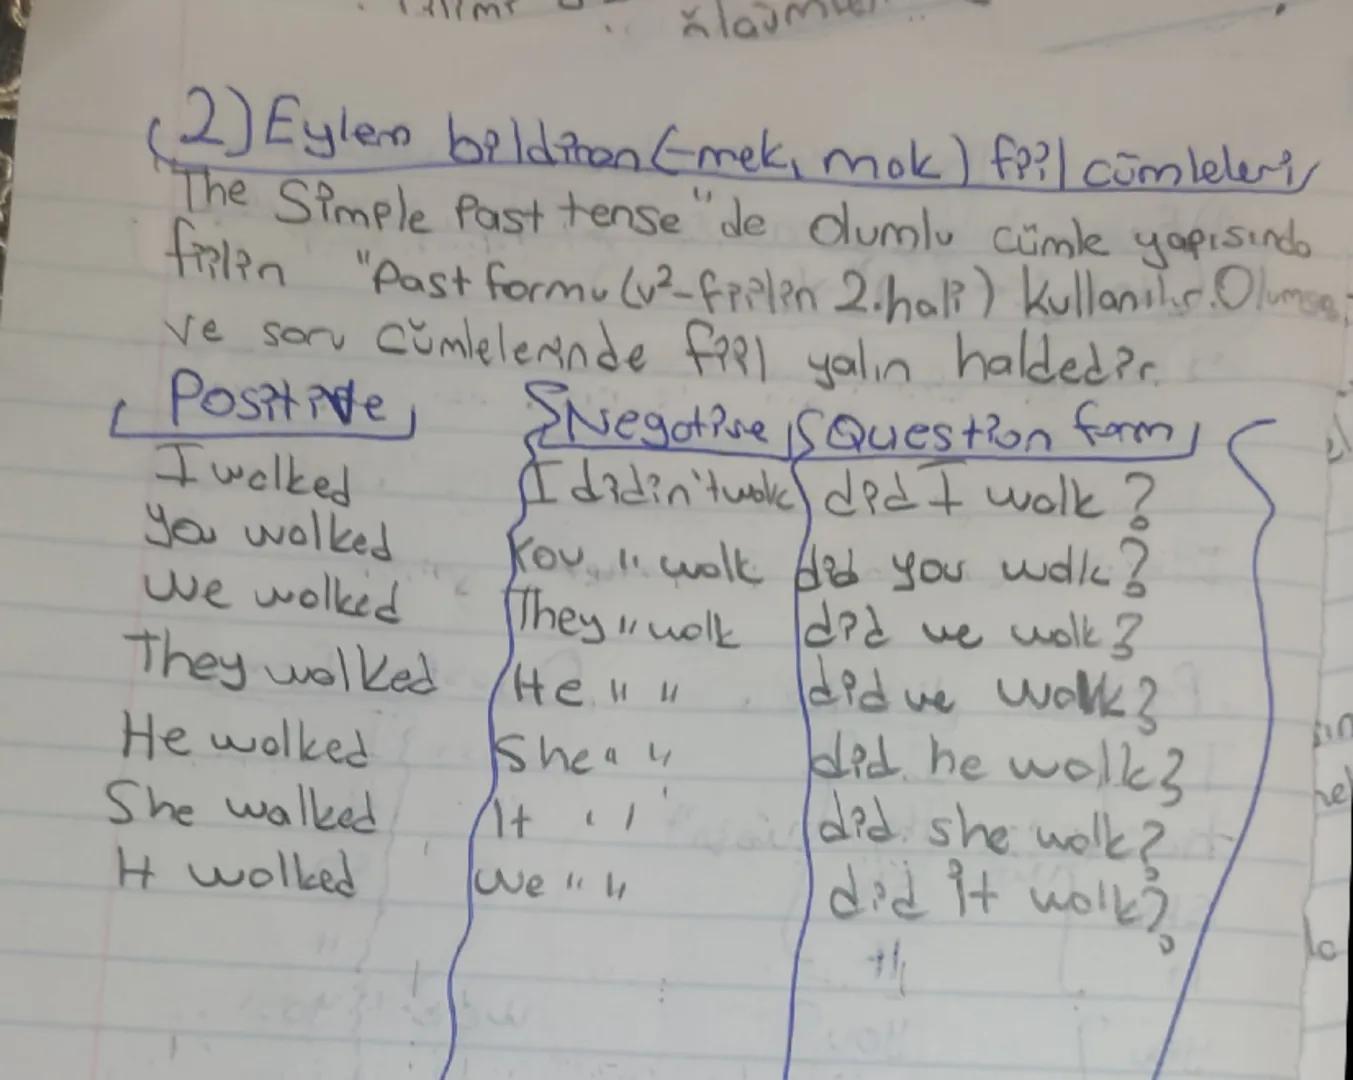 2) Eylem bildiren (-mek, mak) fiil cümleleri
The Simple Past tense "de olumlu cümle yapısında
fiilin "Past formu (v²-fiilin 2.hali) kullanılır. Olumsuz
ve soru cümlelerinde fiil yalın haldedir.
Positive Negative Question form
I walked I didin't walk did I walk?
you walked You " walk did you walk?
we walked They " walk did we walk?
They walked He " " did we walk?
He walked She " " did he walk?
She walked It " " did she walk?
It walked We " " did it walk?